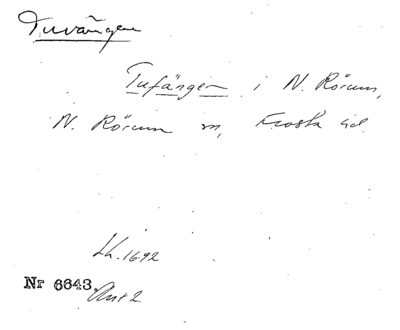 Tuvängen
Tufängen i N. Rörum,
N. Rörum sn, Frosta hd.
Lk. 1692
Nr 6643. Akt 2.